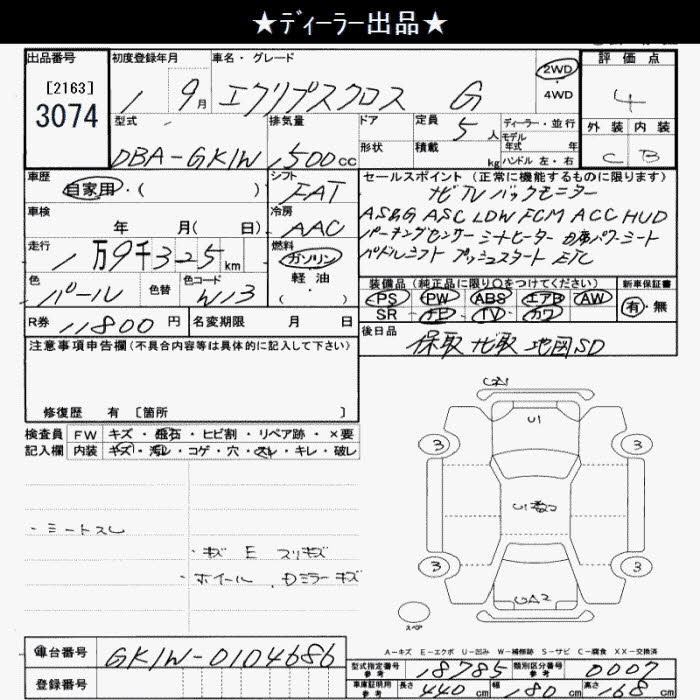 ★ディーラー出品★
出品番号 初度登録年月 車名・グレード 2WD 評価点
[2163] 1 9月 エクリプスクロス G 4WD 4
3074 型式 排気量 ドア 定員 5人 ディーラー・並行 外装 内装
モデル年式 年
DBA-GK1W 1500cc 形状 積載 kg ハンドル 左・右 C B
車歴 シフト セールスポイント (正常に機能するものに限ります)
自家用・( ) FAT ナビTV バックモニター
車検 冷房 ASBG ASC LDW FCM ACC HUD
年 月(日) AAC パーキングセンサー シートヒーター 助席パワーシート
走行 1万9千325km 燃料 ガソリン・軽油・( ) パドルシフト プッシュスタート ETC
色 色替 色コード 装備品 (純正品に限り〇をつけてください) 新車保証書
パール W13 PS PW ABS エアB AW 有・無
R券 11800円 名変期限 月 日 SR ナビ TV カワ
注意事項申告欄(不具合内容等は具体的に記入して下さい) 後日品 保取 ナビ取 地図SD
修復歴 有 〔箇所 〕
検査員 FW キズ・飛石・ヒビ割・リペア跡・×要
記入欄 内装 キズ・汚レ・コゲ・穴・スレ・キレ・破レ
U1
3 3
・シートスレ
・キズ E スリキズ
・ホイール Dミラーキズ
3 3
UA2
スペア
A-キズ E-エクボ U-凹み W-補修跡 S-サビ C-腐食 XX-交換済
車台番号 GK1W-0104686 型式指定番号 参考 18785 類別区分番号 参考 0007
登録番号 車庫証明用 参考 長さ 440cm 幅 180cm 高さ 168cm